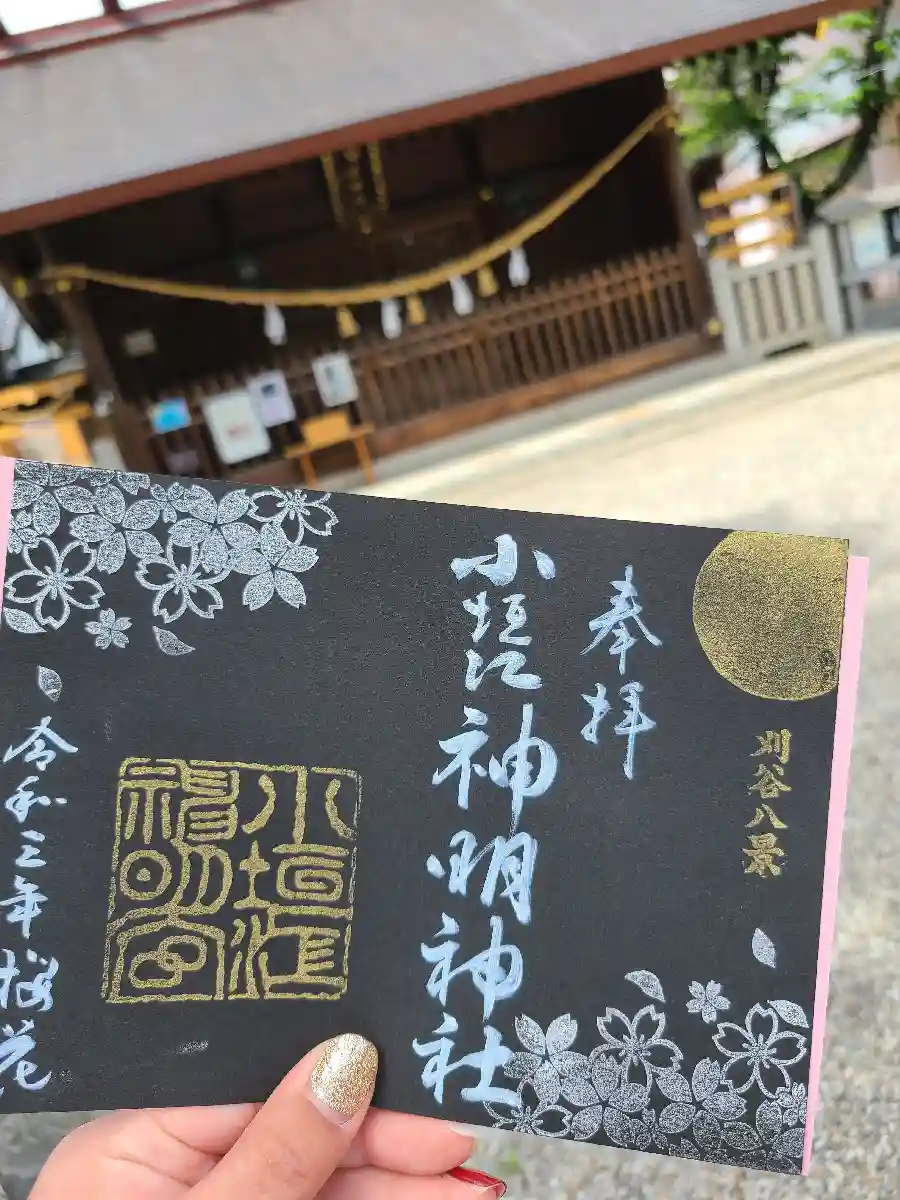 刈谷八景
奉拝
小垣江神明神社
令和三年桜花
小垣江
神明宮